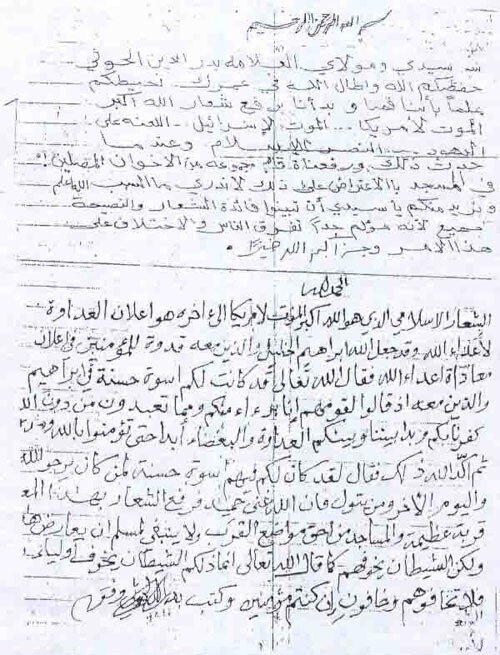 بسم الله الرحمن الرحيم
سيدي ومولاي العلامه بدر الدين الحوثي
حفظكم الله واطال الله في عمرك نحيطكم
علماً بأننا قمنا وبدأنا برفع شعار الله اكبر
الموت لأمريكا .. الموت لإسرائيل .. اللعنه على
اليهود .. النصر للإسلام وعندما
حدث ذلك ورفعناه قام مجموعه من الاخوان المصلين
في المسجد بالاعتراض على ذلك لاندري ما السبب الله اعلم
ونريد منكم يا سيدي أن تبينوا فائدة الشعار والنصيحة
للجميع لأنه مؤلم جداً تفرق الناس والاختلاف على
هذا الأمر وجزاكم الله خيراً .
الحمد لله
الشعار الاسلامي الذي هو الله اكبر الموت لامريكا الى آخره هو اعلان العداوة
لأعداء الله وقد جعل الله ابراهيم الخليل والذين معه قدوة للمؤمنين في اعلان
معاداة اعداء الله فقال الله تعالى قد كانت لكم اسوة حسنة في ابراهيم
والذين معه اذ قالوا لقومهم إنا برءاء منكم ومما تعبدون من دون الله
كفرنا بكم وبدا بيننا وبينكم العداوة والبغضاء أبدا حتى تؤمنوا بالله وحده
ثم أكد الله ذلك فقال لقد كان لكم فيهم اسوة حسنة لمن كان يرجو الله
واليوم الآخر ومن يتول فان الله غني حميد فرفع الشعار بهذا
قربة عظيمة والمساجد من احق مواضع القرب ولا ينبغي لمسلم ان يعارض
ولكن الشيطان يخوفهم كما قال الله تعالى انما ذلكم الشيطان يخوف أولياءه
فلا تخافوهم وخافون إن كنتم مؤمنين وكتب بدر الدين الحوثي وفقه
الله